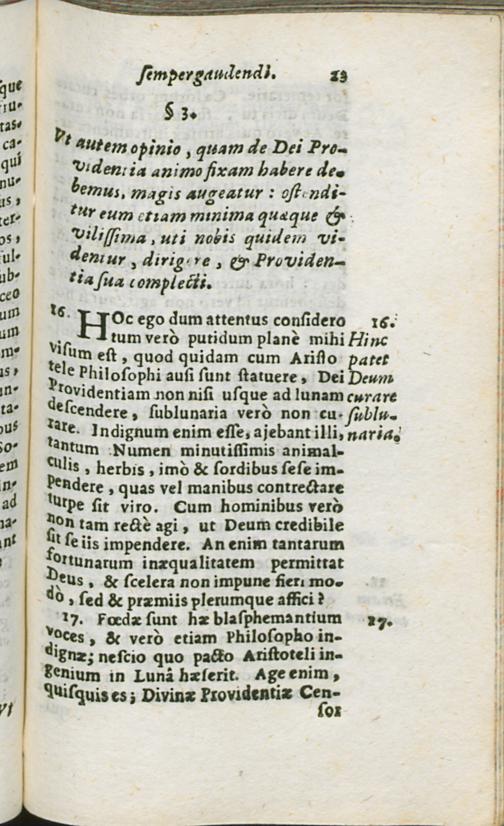 sempergaudendi. 23
§ 3.
Vt autem opinio, quam de Dei Pro-
videntia animo fixam habere de-
bemus, magis augeatur : ostendi-
tur eum etiam minima quæque &
vilissima, uti nobis quidem vi-
dentur, dirigere, & Providen-
tia sua complecti.
16. HOc ego dum attentus considero 16.
tum verò putidum planè mihi Hinc
visum est, quod quidam cum Aristo patet
tele Philosophi ausi sunt statuere, Dei Deum
Providentiam non nisi usque ad lunam curare
descendere, sublunaria verò non cu- sublu-
rare. Indignum enim esse, ajebant illi, naria.
tantum Numen minutissimis animal-
culis, herbis, imò & sordibus sese im-
pendere, quas vel manibus contrectare
turpe sit viro. Cum hominibus verò
non tam rectè agi, ut Deum credibile
sit se iis impendere. An enim tantarum
fortunarum inæqualitatem permittat
Deus, & scelera non impune fieri mo-
dò, sed & præmiis plerumque affici?
17. Fœdæ sunt hæ blasphemantium 17.
voces, & verò etiam Philosopho in-
dignæ; nescio quo pacto Aristoteli in-
genium in Lunâ hæserit. Age enim,
quisquis es; Divinæ Providentiæ Cen-
sor
que
tas-
ca-
qui
nu-
us,
ter-
os,
ful-
ub-
ceo
um
um
m-
us,
in-
ta-
bus
So-
em
in-
ad
na-
ant
Vt